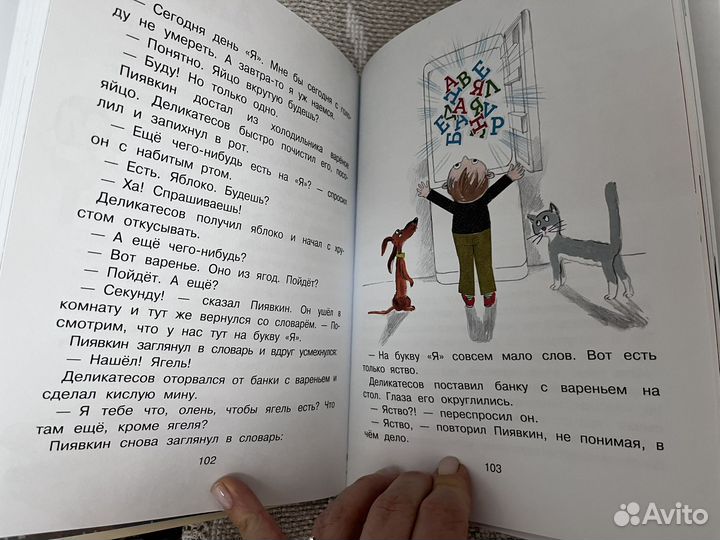 — Сегодня день «Я». Мне бы сегодня с голо-
ду не умереть. А завтра-то я уж наемся.
— Понятно. Яйцо вкрутую будешь?
— Буду! Но только одно.
Пиявкин достал из холодильника варёное
яйцо. Деликатесов быстро почистил его, посо-
лил и запихнул в рот.
— Ещё чего-нибудь есть на «Я»? — спросил
он с набитым ртом.
— Есть. Яблоко. Будешь?
— Ха! Спрашиваешь!
Деликатесов получил яблоко и начал с хру-
стом откусывать.
— А ещё чего-нибудь?
— Вот варенье. Оно из ягод. Пойдёт?
— Пойдёт. А ещё?
— Секунду! — сказал Пиявкин. Он ушёл в
комнату и тут же вернулся со словарём. — По-
смотрим, что у нас тут на букву «Я».
Пиявкин заглянул в словарь и вдруг усмехнулся:
— Нашёл! Ягель!
Деликатесов оторвался от банки с вареньем и
сделал кислую мину.
— Я тебе что, олень, чтобы ягель есть? Что
там ещё, кроме ягеля?
Пиявкин снова заглянул в словарь:
102
— На букву «Я» совсем мало слов. Вот есть
только яство.
Деликатесов поставил банку с вареньем на
стол. Глаза его округлились.
— Яство?! — переспросил он.
— Яство, — повторил Пиявкин, не понимая, в
чём дело.
103
Avito